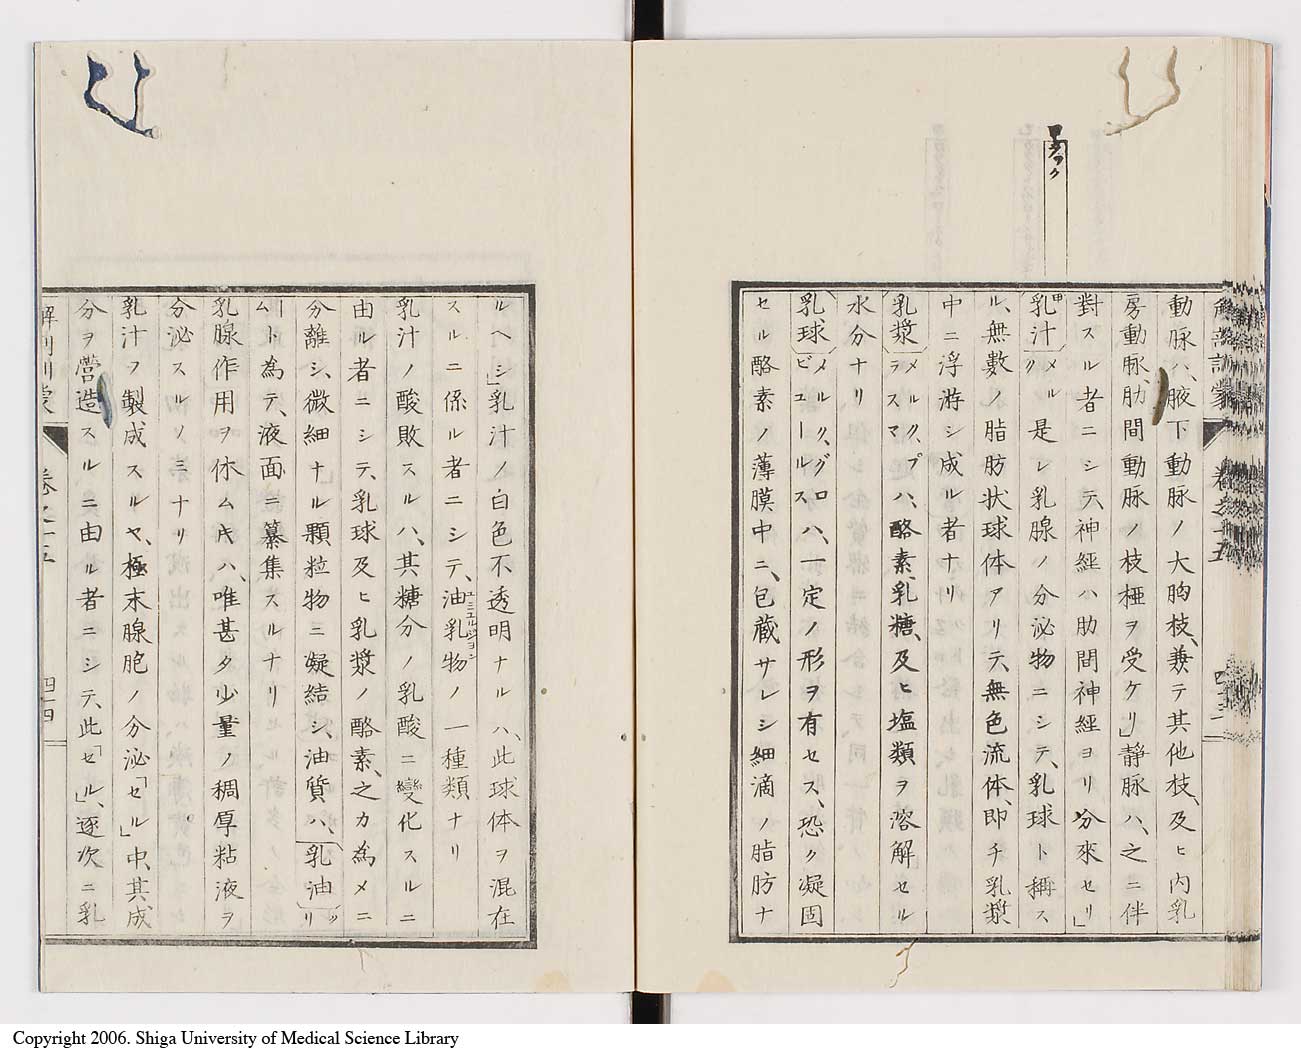 メルク
解剖訓蒙 卷之十五 四十三
動脉ハ、腋下動脉ノ大胸枝、兼テ其他枝、及ヒ内乳
房動脉、肋間動脉ノ枝椏ヲ受ケリ」静脉ハ、之ニ伴
對スル者ニシテ、神經ハ肋間神經ヨリ分來セリ」
甲乳汁メルク是レ乳腺ノ分泌物ニシテ、乳球ト稱ス
ル、無數ノ脂肪状球体アリテ、無色流体、即チ乳漿
中ニ浮游シ成ル者ナリ
乳漿メルク、プラスマハ、酪素、乳糖、及ヒ塩類ヲ溶解セル
水分ナリ
乳球メルク、グロビユールスハ、一定ノ形ヲ有セス、恐ク凝固
セル酪素ノ薄膜中ニ、包蔵サレシ細滴ノ脂肪ナ
ルヘシ」乳汁ノ白色不透明ナルハ、此球体ヲ混在
スルニ係ル者ニシテ、油乳物エミユルジヨンノ一種類ナリ
乳汁ノ酸敗スルハ、其糖分ノ乳酸ニ變化スルニ
由ル者ニシテ、乳球及ヒ乳漿ノ酪素、之カ為メニ
分離シ、微細ナル顆粒物ニ凝結シ、油質ハ、乳油
ト為テ、液面ニ纂集スルナリ
乳腺作用ヲ休ムキハ、唯甚タ少量ノ稠厚粘液ヲ
分泌スルノミナリ
乳汁ヲ製成スルヤ、極末腺胞ノ分泌「セル」中、其成
分ヲ營造スルニ由ル者ニシテ、此「セル」、逐次ニ乳
解剖訓蒙 卷之十五 四十四
Copyright 2006. Shiga University of Medical Science Library